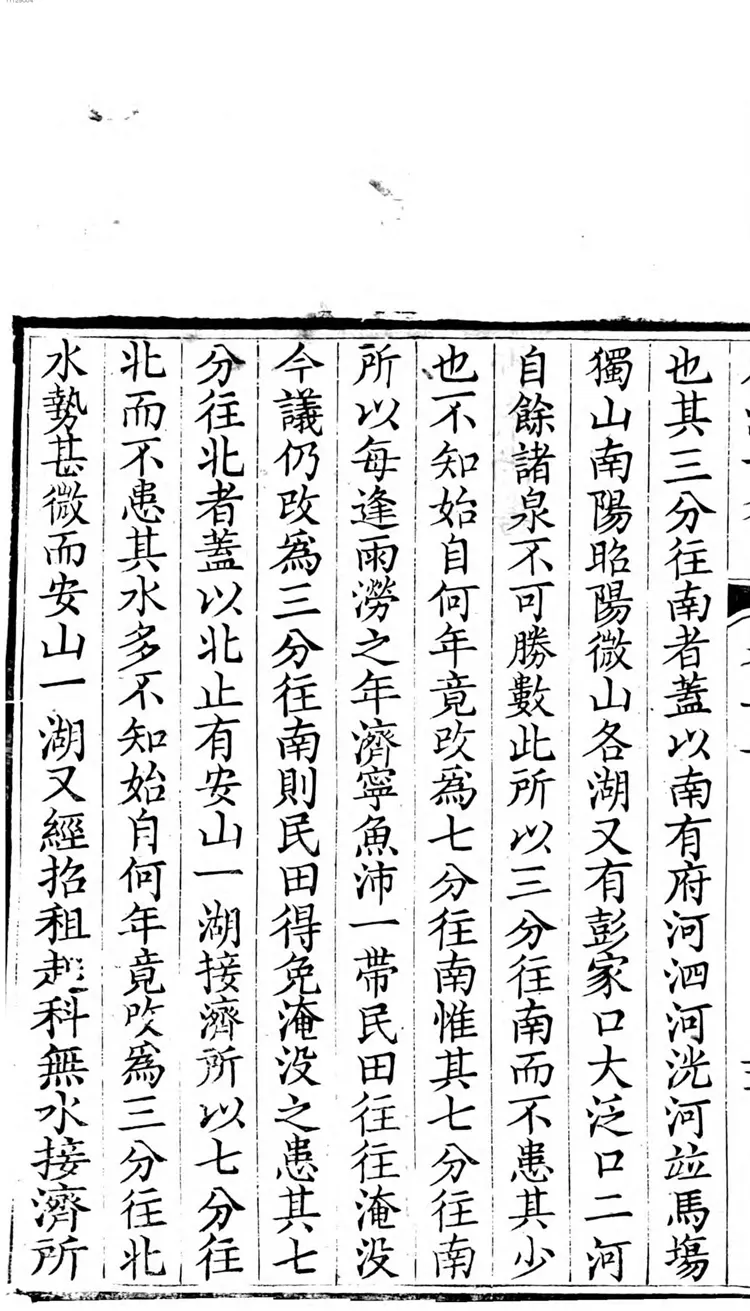 也其三分往南者蓋以南有府河泗河洸河竝馬塲
獨山南陽昭陽微山各湖又有彭家口大泛口二河
自餘諸泉不可勝數此所以三分往南而不患其少
也不知始自何年竟改爲七分往南惟其七分往南
所以每逢雨澇之年濟寧魚沛一帶民田往往淹没
今議仍改爲三分往南則民田得免淹没之患其七
分往北者蓋以北止有安山一湖接濟所以七分往
北而不患其水多不知始自何年竟改爲三分往北
水勢甚微而安山一湖又經招租起科無水接濟所